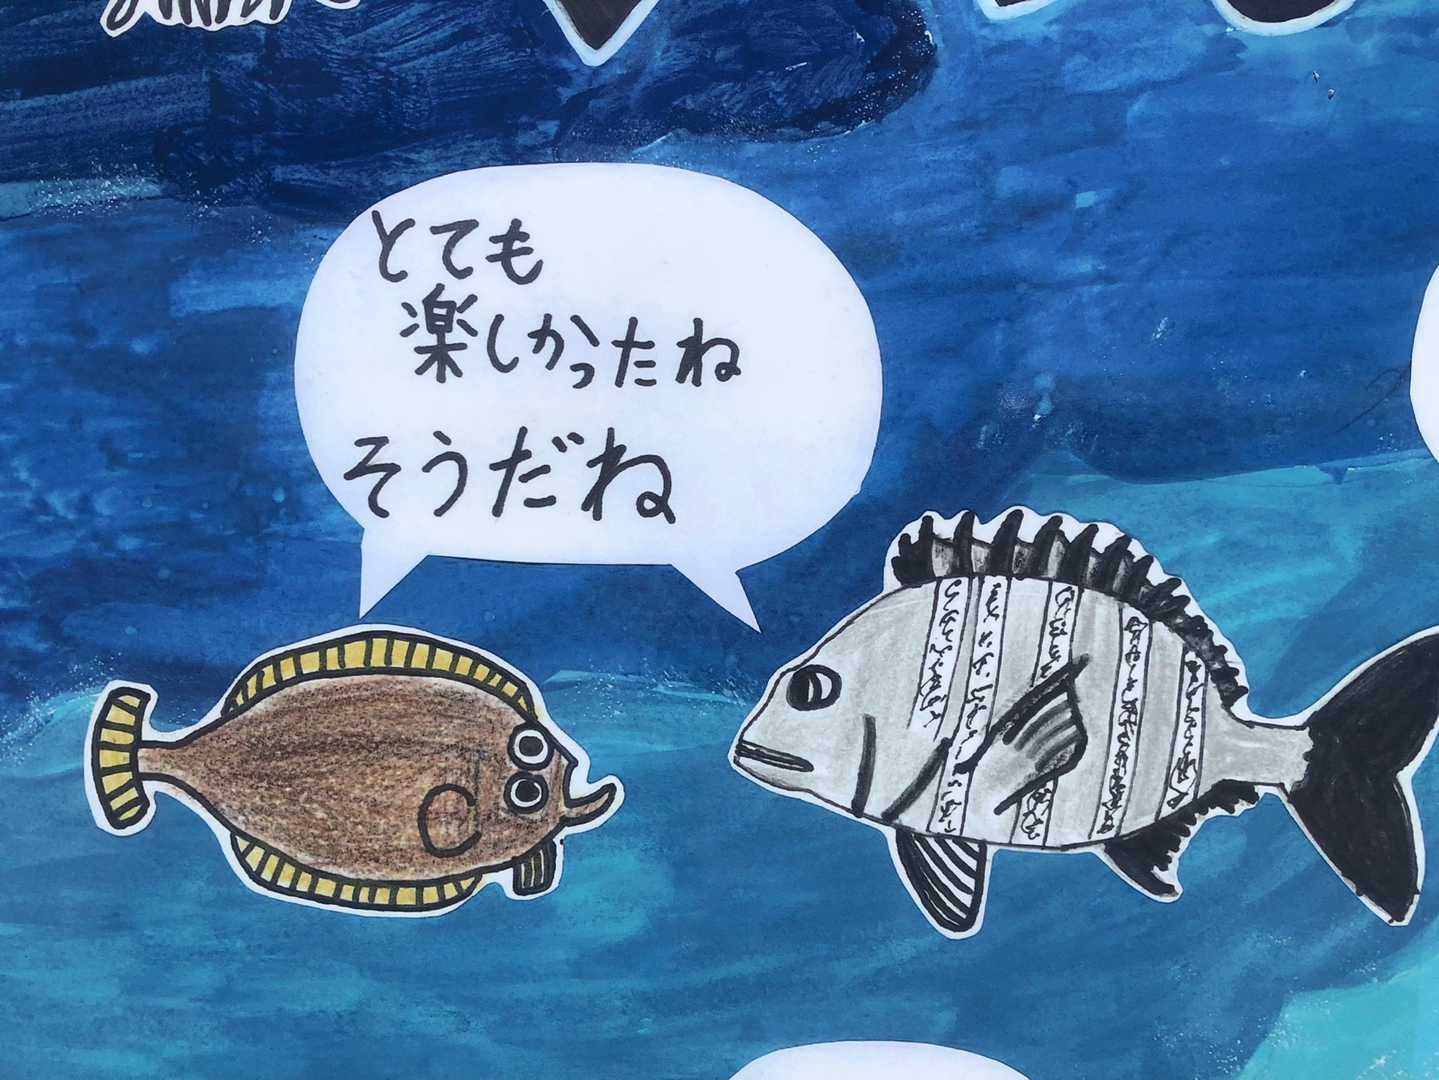 とても
楽しかったね
そうだね